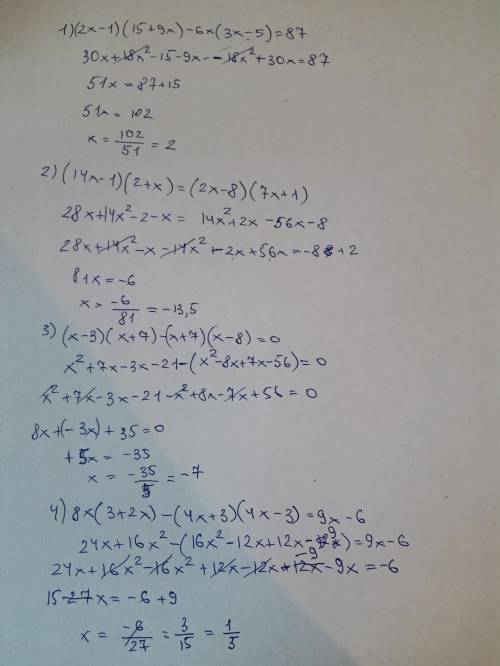 1) (2x-1)(15+9x)-6x(3x-5)=87
30x+18x²-15-9x-18x²+30x=87
51x=87+15
51x=102
x=102/51=2
2) (14x-1)(2+x)=(2x-8)(7x+1)
28x+14x²-2-x=14x²+2x-56x-8
28x+14x²-x-14x²-2x+56x=-8+2
81x=-6
x=-6/81=-13,5
3) (x-3)(x+7)-(x+7)(x-8)=0
x²+7x-3x-21-(x²-8x+7x-56)=0
x²+7x-3x-21-x²+8x-7x+56=0
8x+(-3x)+35=0
+5x=-35
x=-35/5=-7
4) 8x(3+2x)-(4x+3)(4x-3)=9x-6
24x+16x²-(16x²-12x+12x-9)=9x-6
24x+16x²-16x²+12x-12x-9-9x=-6
15x=-6+9
x=-6/27=3/15=1/5